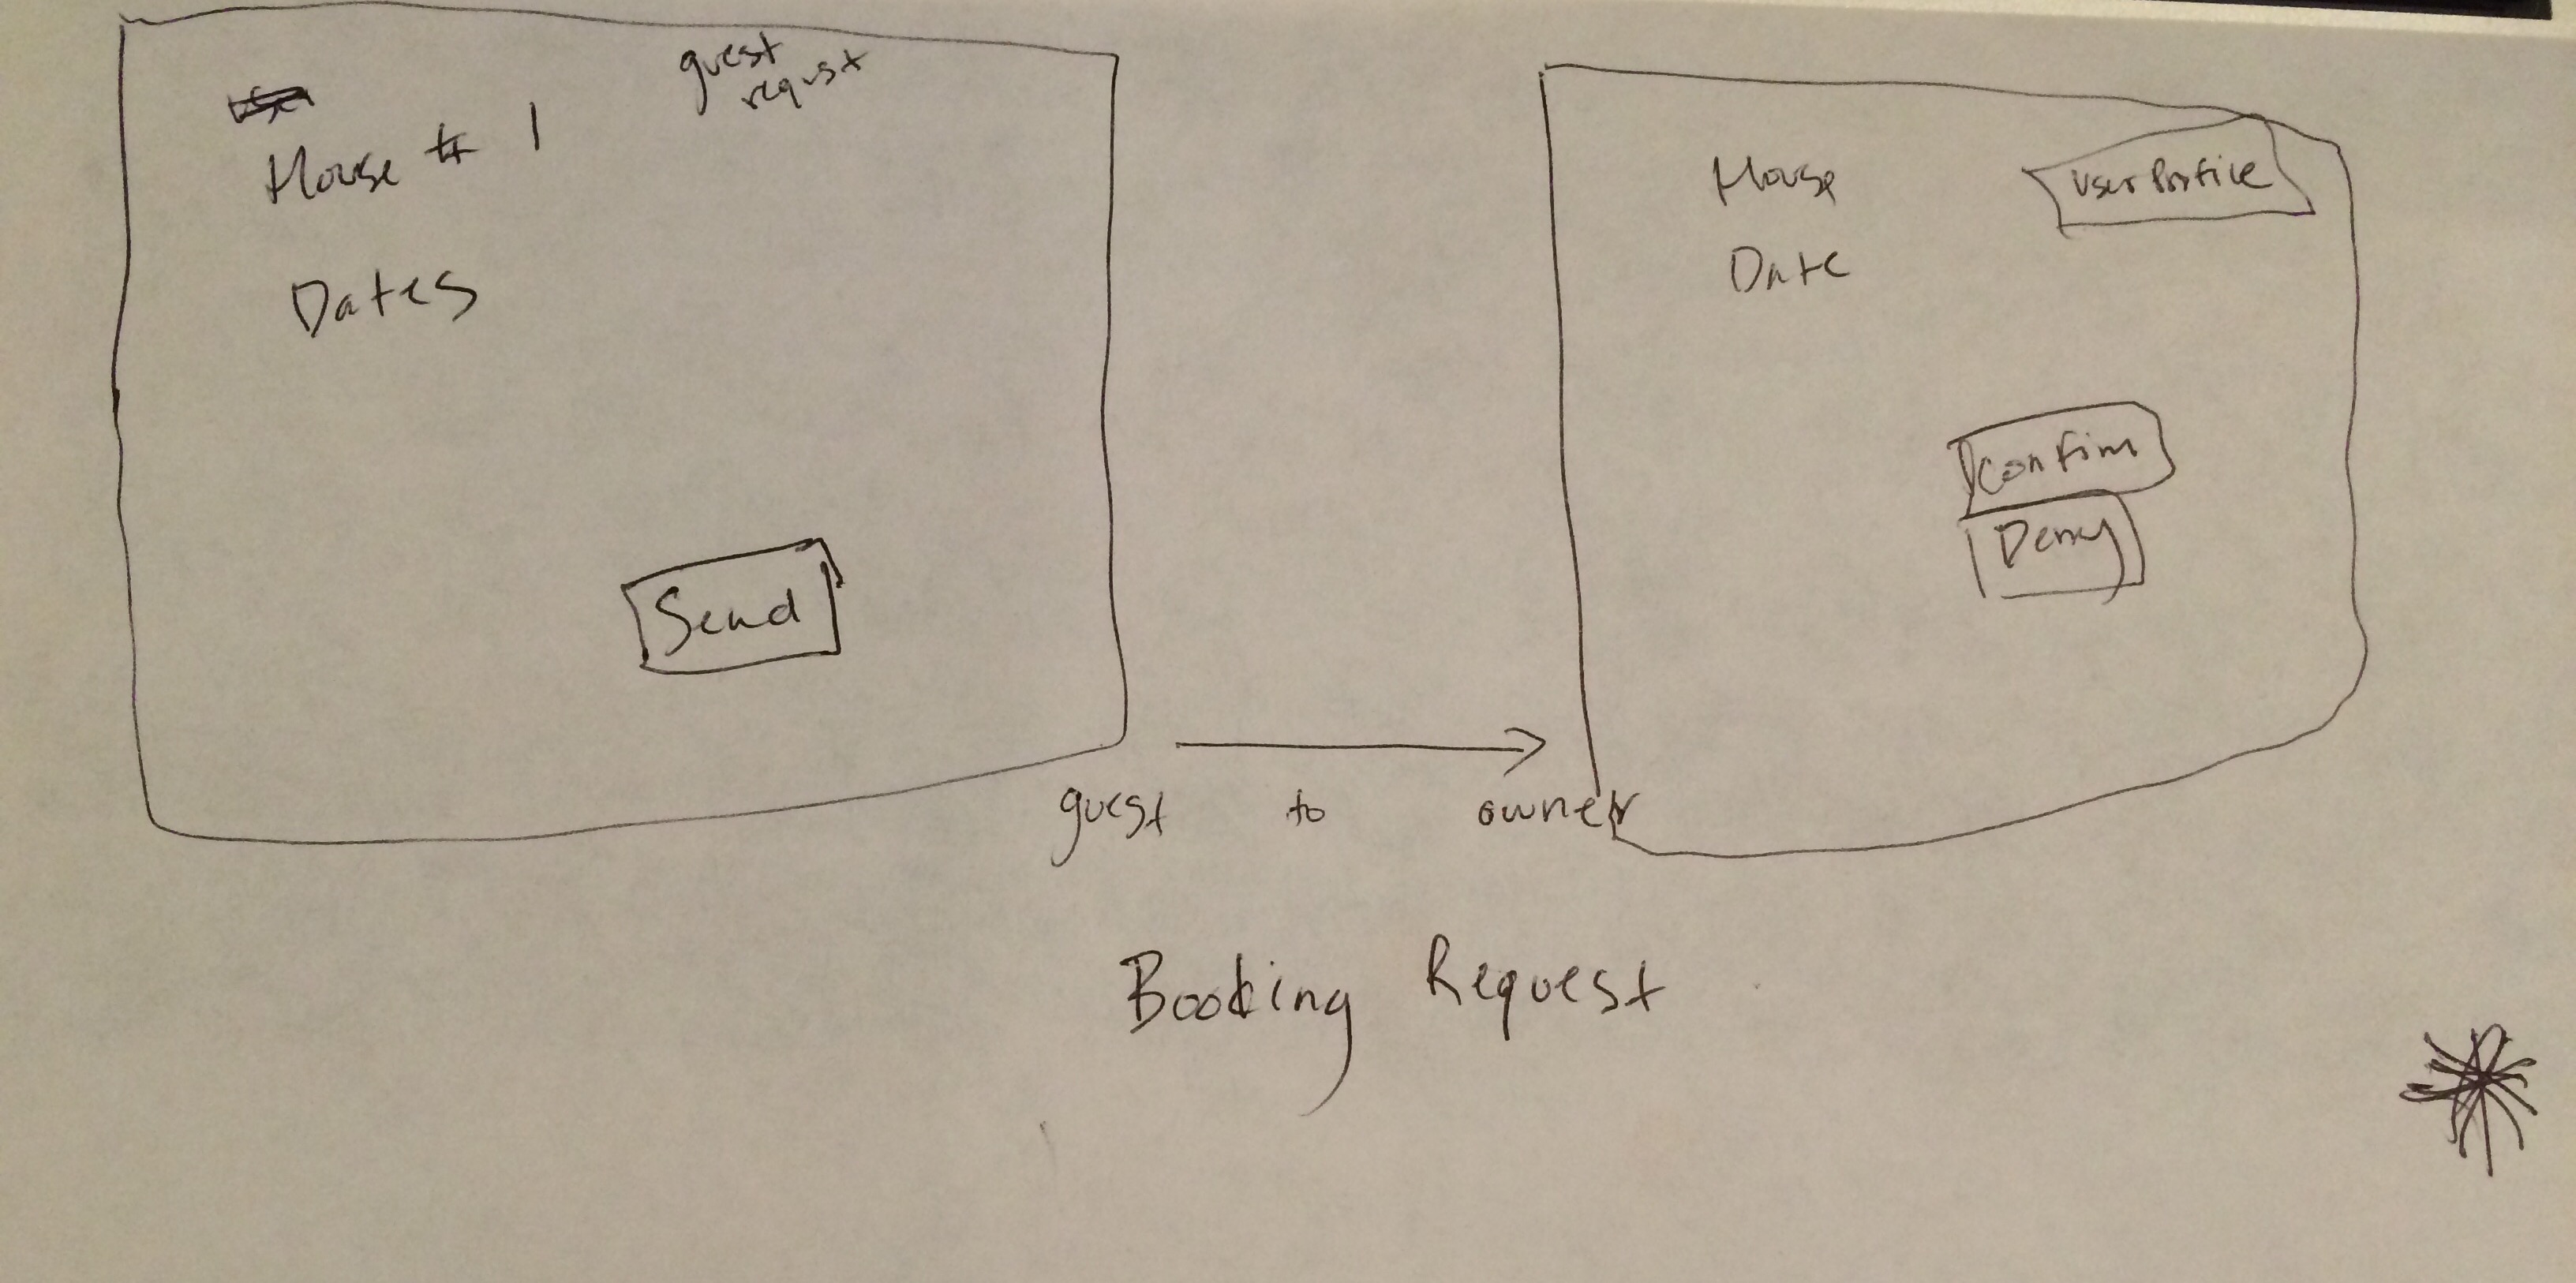 guest
requst
House # 1
Dates
Send
House
User Profile
Date
confim
Deny
guest to owner
Booking Request